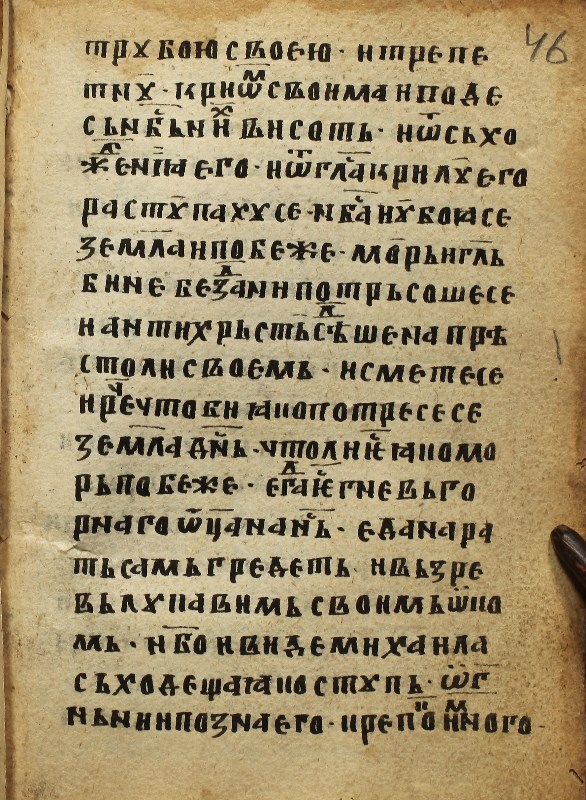 46
трꙋбою своею · и трепе
тнꙋ · крилѡⷨ своима и поде
сьнⷦ҇ь ниⷯ висоть · и ѿ сьхо
жⷣенїꙗ его · и ѿ глⷭ҇а крилꙋ его
растꙋпахꙋ се · нбⷭ҇а нꙋ боꙗ се
землꙗ и побеже · морь и гль
бине беⷥдани потрьсоше се
и антихрьсть сѣⷣше на прѣ
столи своемь · и смете се
и реⷱ҇ что би ꙗко потресе се
землꙗ днⷭ҇ь · что ли ѥⷭ҇ ꙗко мо
рь побеже · еⷣга ѥⷭ҇ гневь го
рнаго ѿца на нⷭ҇ь · еда на ра
ть самь гредеть и вьзре
вь лꙋкавимь своимь ѡко
мь · и бо и виде михаила
сьходеща ꙗко стꙋпь · ѡг
ньни и позна его · и реⷱ҇ по ниⷨ много